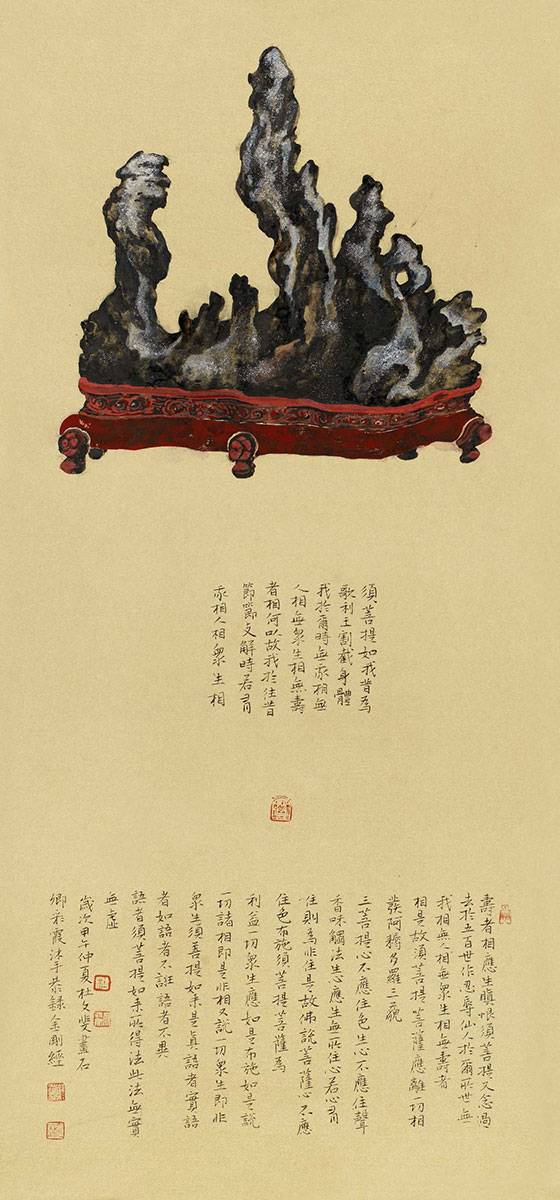 須菩提如我昔為
歌利王割截身體
我於爾時無我相無
人相無衆生相無壽
者相何以故我於往昔
節節支解時若有
我相人相衆生相
壽者相應生瞋恨須菩提又念過
去於五百世作忍辱仙人於爾所世無
我相無人相無衆生相無壽者
相是故須菩提菩薩應離一切相
發阿耨多羅三藐
三菩提心不應住色生心不應住聲
香味觸法生心應生無所住心若心有
住則為非住是故佛說菩薩心不應
住色布施須菩提菩薩為
利益一切衆生應如是布施如是說
一切諸相即是非相又說一切衆生即非
衆生須菩提如來是真語者實語
者如語者不誑語者不異
語者須菩提如來所得法此法無實
無虛
歲次甲午仲夏杜畫石
卿彩霞沐手恭錄金剛經